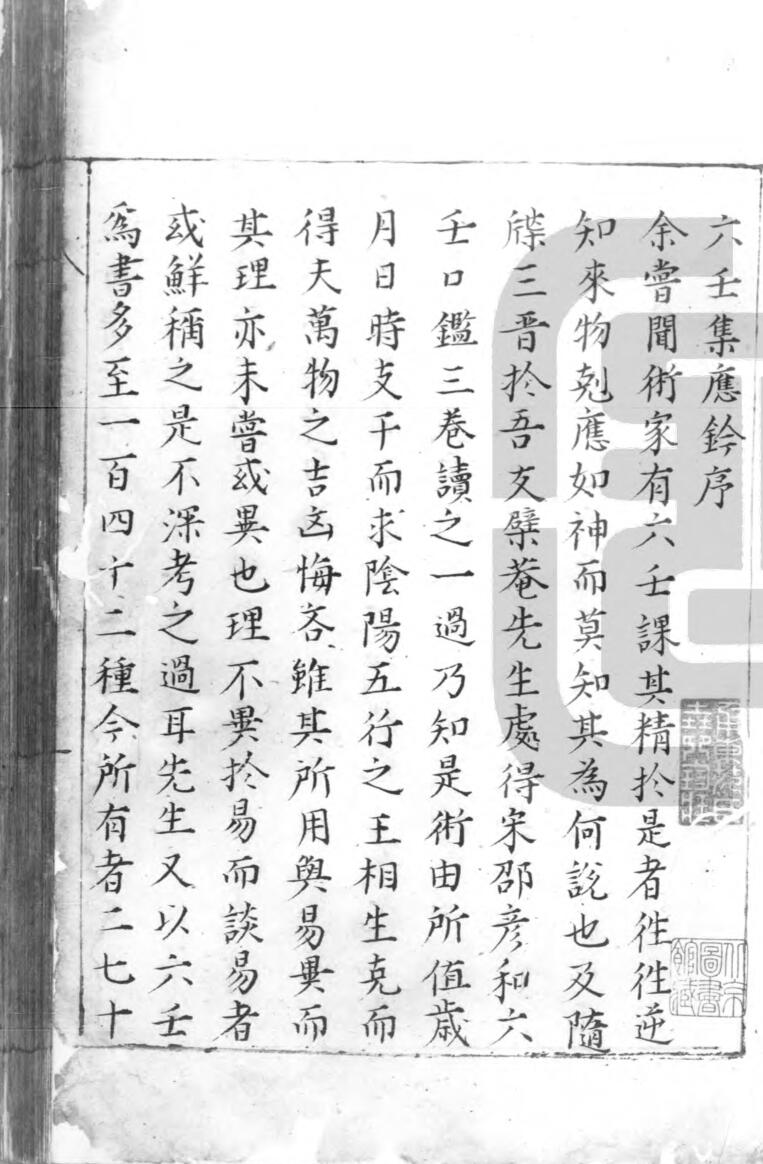 六壬集應鈐序
余嘗聞術家有六壬課其精扵是者徃徃逆
知來物剋應如神而莫知其為何說也及隨
牒三晋扵吾友檗菴先生處得宋邵彦和六
壬口鑑三卷讀之一過乃知是術由所值歳
月日時支干而求陰陽五行之王相生克而
得夫萬物之吉凶悔吝雖其所用與易異而
其理亦未嘗或異也理不異扵易而談易者
或鮮稱之是不深考之過耳先生又以六壬
爲書多至一百四十二種今所有者二七十
北京圖書館藏